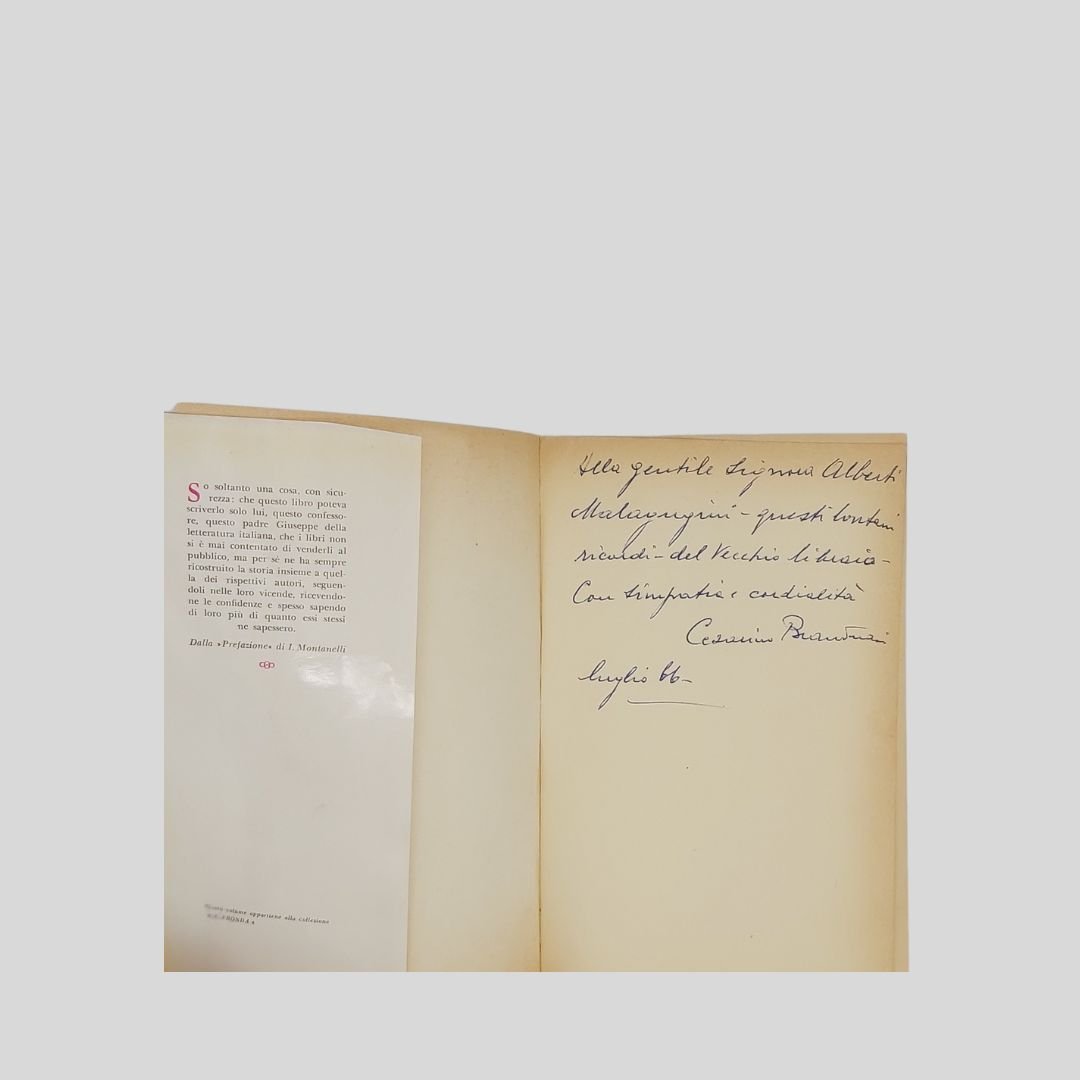 So soltanto una cosa, con sicu-
rezza: che questo libro poteva
scriverlo solo lui, questo confesso-
re, questo padre Giuseppe della
letteratura italiana, che i libri non
si è mai contentato di venderli al
pubblico, ma per sé ne ha sempre
ricostruito la storia insieme a quel-
la dei rispettivi autori, seguen-
doli nelle loro vicende, ricevendo-
ne le confidenze e spesso sapendo
di loro più di quanto essi stessi
ne sapessero.
Dalla »Prefazione« di I. Montanelli
volume appartiene alla collezione
Alla gentile Signora Alberti
Malagugini - questi lontani
ricordi - del Vecchio libraio -
Con simpatia e cordialità
Cesarino Branduani
luglio 66 -